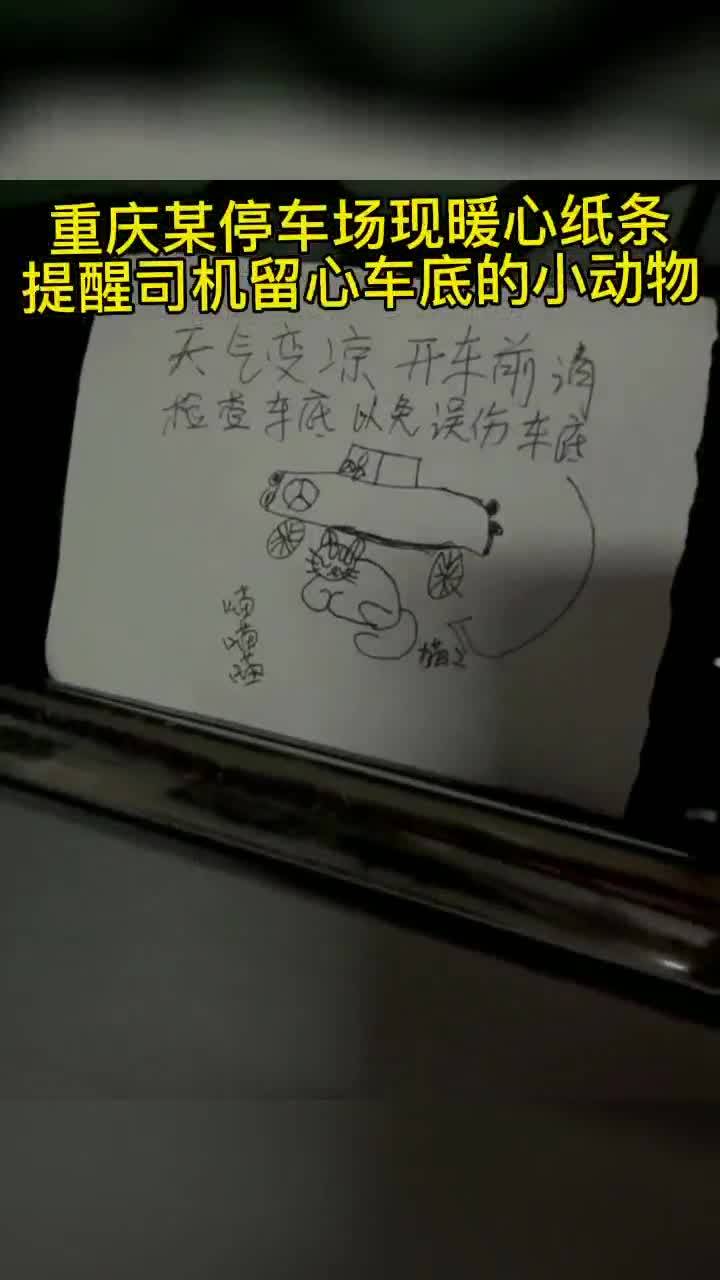 重庆某停车场现暖心纸条
提醒司机留心车底的小动物
天气变凉 开车前请
检查车底 以免误伤车底
喵
喵
喵
猫之